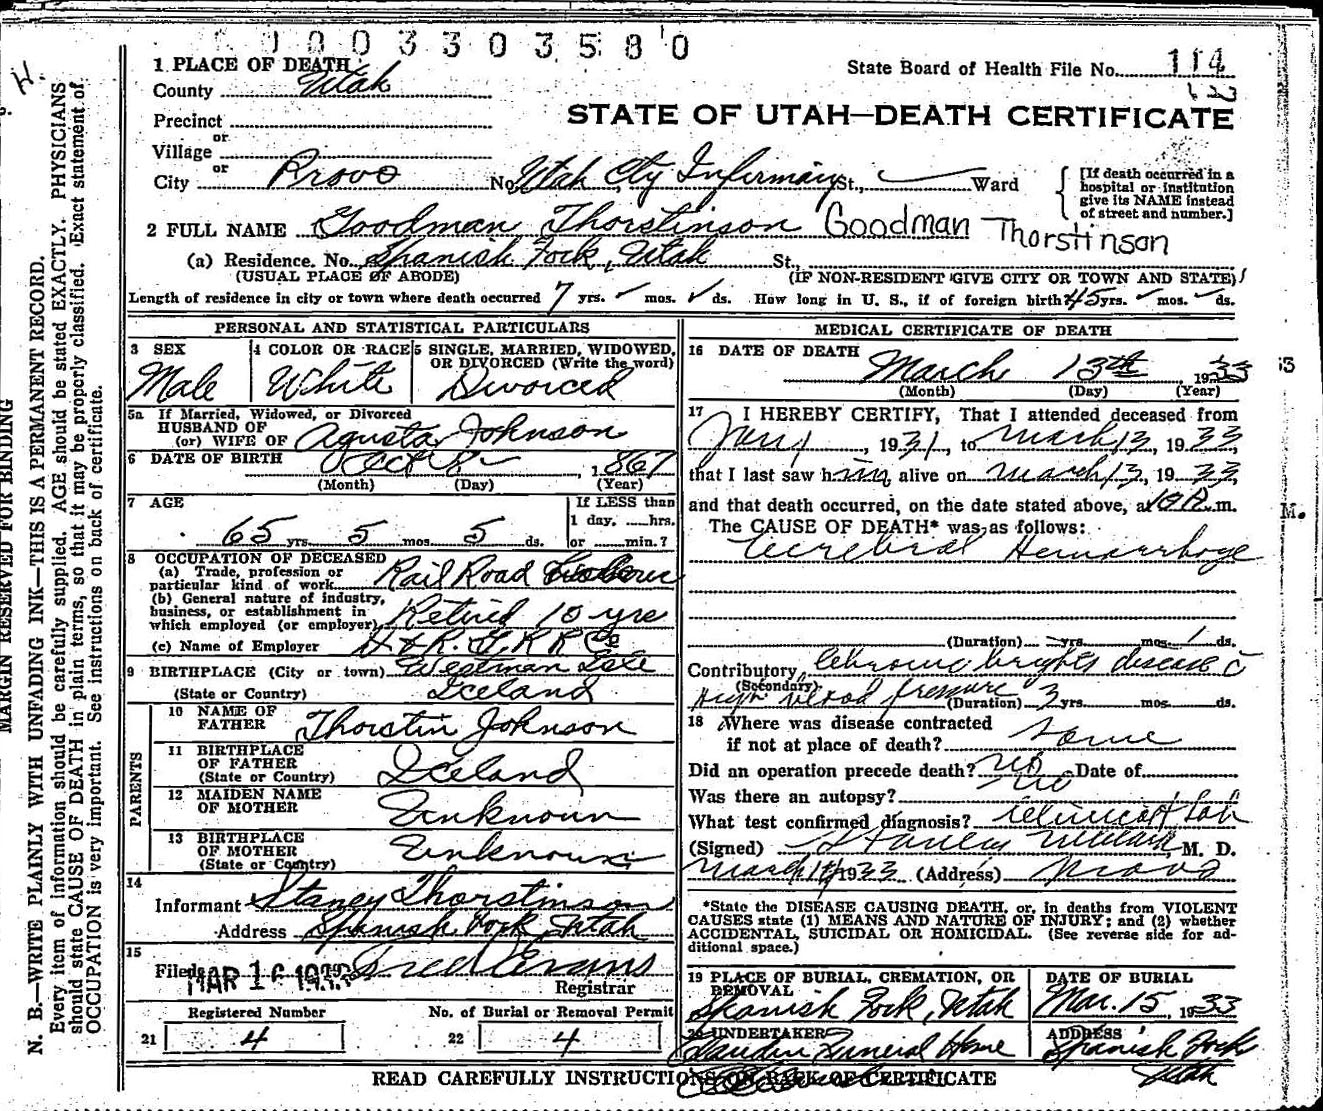 0 0 0 3 3 0 3 5 8 0
1 PLACE OF DEATH
County Utah
State Board of Health File No. 114
STATE OF UTAH—DEATH CERTIFICATE
Precinct
or
Village
or
City Provo No. Utah Cty Infirmary St., Ward
[If death occurred in a hospital or institution give its NAME instead of street and number.]
2 FULL NAME Goodman Thorstinson Goodman Thorstinson
(a) Residence. No. Spanish Fork, Utah St.,
(USUAL PLACE OF ABODE) (IF NON-RESIDENT GIVE CITY OR TOWN AND STATE)
Length of residence in city or town where death occurred 7 yrs. mos. ds. How long in U. S., if of foreign birth? 45 yrs. mos. ds.
PERSONAL AND STATISTICAL PARTICULARS
3 SEX Male
4 COLOR OR RACE White
5 SINGLE, MARRIED, WIDOWED, OR DIVORCED (Write the word) Divorced
5a If Married, Widowed, or Divorced
HUSBAND OF
(or) WIFE OF Agusta Johnson
6 DATE OF BIRTH Oct 8 1867
(Month) (Day) (Year)
7 AGE
65 yrs. 5 mos. 5 ds.
If LESS than
1 day, hrs.
or min.?
8 OCCUPATION OF DECEASED
(a) Trade, profession or
particular kind of work Rail Road
(b) General nature of industry,
business, or establishment in
which employed (or employer) Retired 10 yrs
(c) Name of Employer D & R. G. R R Co
9 BIRTHPLACE (City or town) Westman Isle
(State or Country) Iceland
PARENTS
10 NAME OF FATHER Thorstin Johnson
11 BIRTHPLACE OF FATHER (State or Country) Iceland
12 MAIDEN NAME OF MOTHER Unknown
13 BIRTHPLACE OF MOTHER (State or Country) Unknown
14
Informant Stanley Thorstinson
Address Spanish Fork, Utah
15
Filed MAR 16 1933 Fred Evans
Registrar
Registered Number
21 4
No. of Burial or Removal Permit
22 4
MEDICAL CERTIFICATE OF DEATH
16 DATE OF DEATH
March 13th 1933
(Month) (Day) (Year)
17 I HEREBY CERTIFY, That I attended deceased from
Jany, 1931, to March 13, 1933,
that I last saw him alive on March 13, 1933,
and that death occurred, on the date stated above, at 10 P. m.
The CAUSE OF DEATH* was as follows:
Cerebral Hemorrhage
(Duration) yrs. mos. 1 ds.
Contributory Chronic brights disease c
(Secondary) High blood pressure (Duration) 3 yrs. mos. ds.
18 Where was disease contracted
if not at place of death? Same
Did an operation precede death? no Date of
Was there an autopsy? no
What test confirmed diagnosis? Clinical & Lab
(Signed) Stanley M. D.
March 1933 (Address) Provo
*State the DISEASE CAUSING DEATH, or, in deaths from VIOLENT
CAUSES state (1) MEANS AND NATURE OF INJURY; and (2) whether
ACCIDENTAL, SUICIDAL OR HOMICIDAL. (See reverse side for ad-
ditional space.)
19 PLACE OF BURIAL, CREMATION, OR REMOVAL
Spanish Fork, Utah
DATE OF BURIAL
Mar. 15, 1933
20 UNDERTAKER
Funeral Home
ADDRESS
Spanish Fork
Utah
READ CAREFULLY INSTRUCTIONS ON BACK OF CERTIFICATE
MARGIN RESERVED FOR BINDING
N. B.—WRITE PLAINLY WITH UNFADING INK—THIS IS A PERMANENT RECORD.
Every item of information should be carefully supplied. AGE should be stated EXACTLY. PHYSICIANS
should state CAUSE OF DEATH in plain terms, so that it may be properly classified. Exact statement of
OCCUPATION is very important. See instructions on back of certificate.
M.